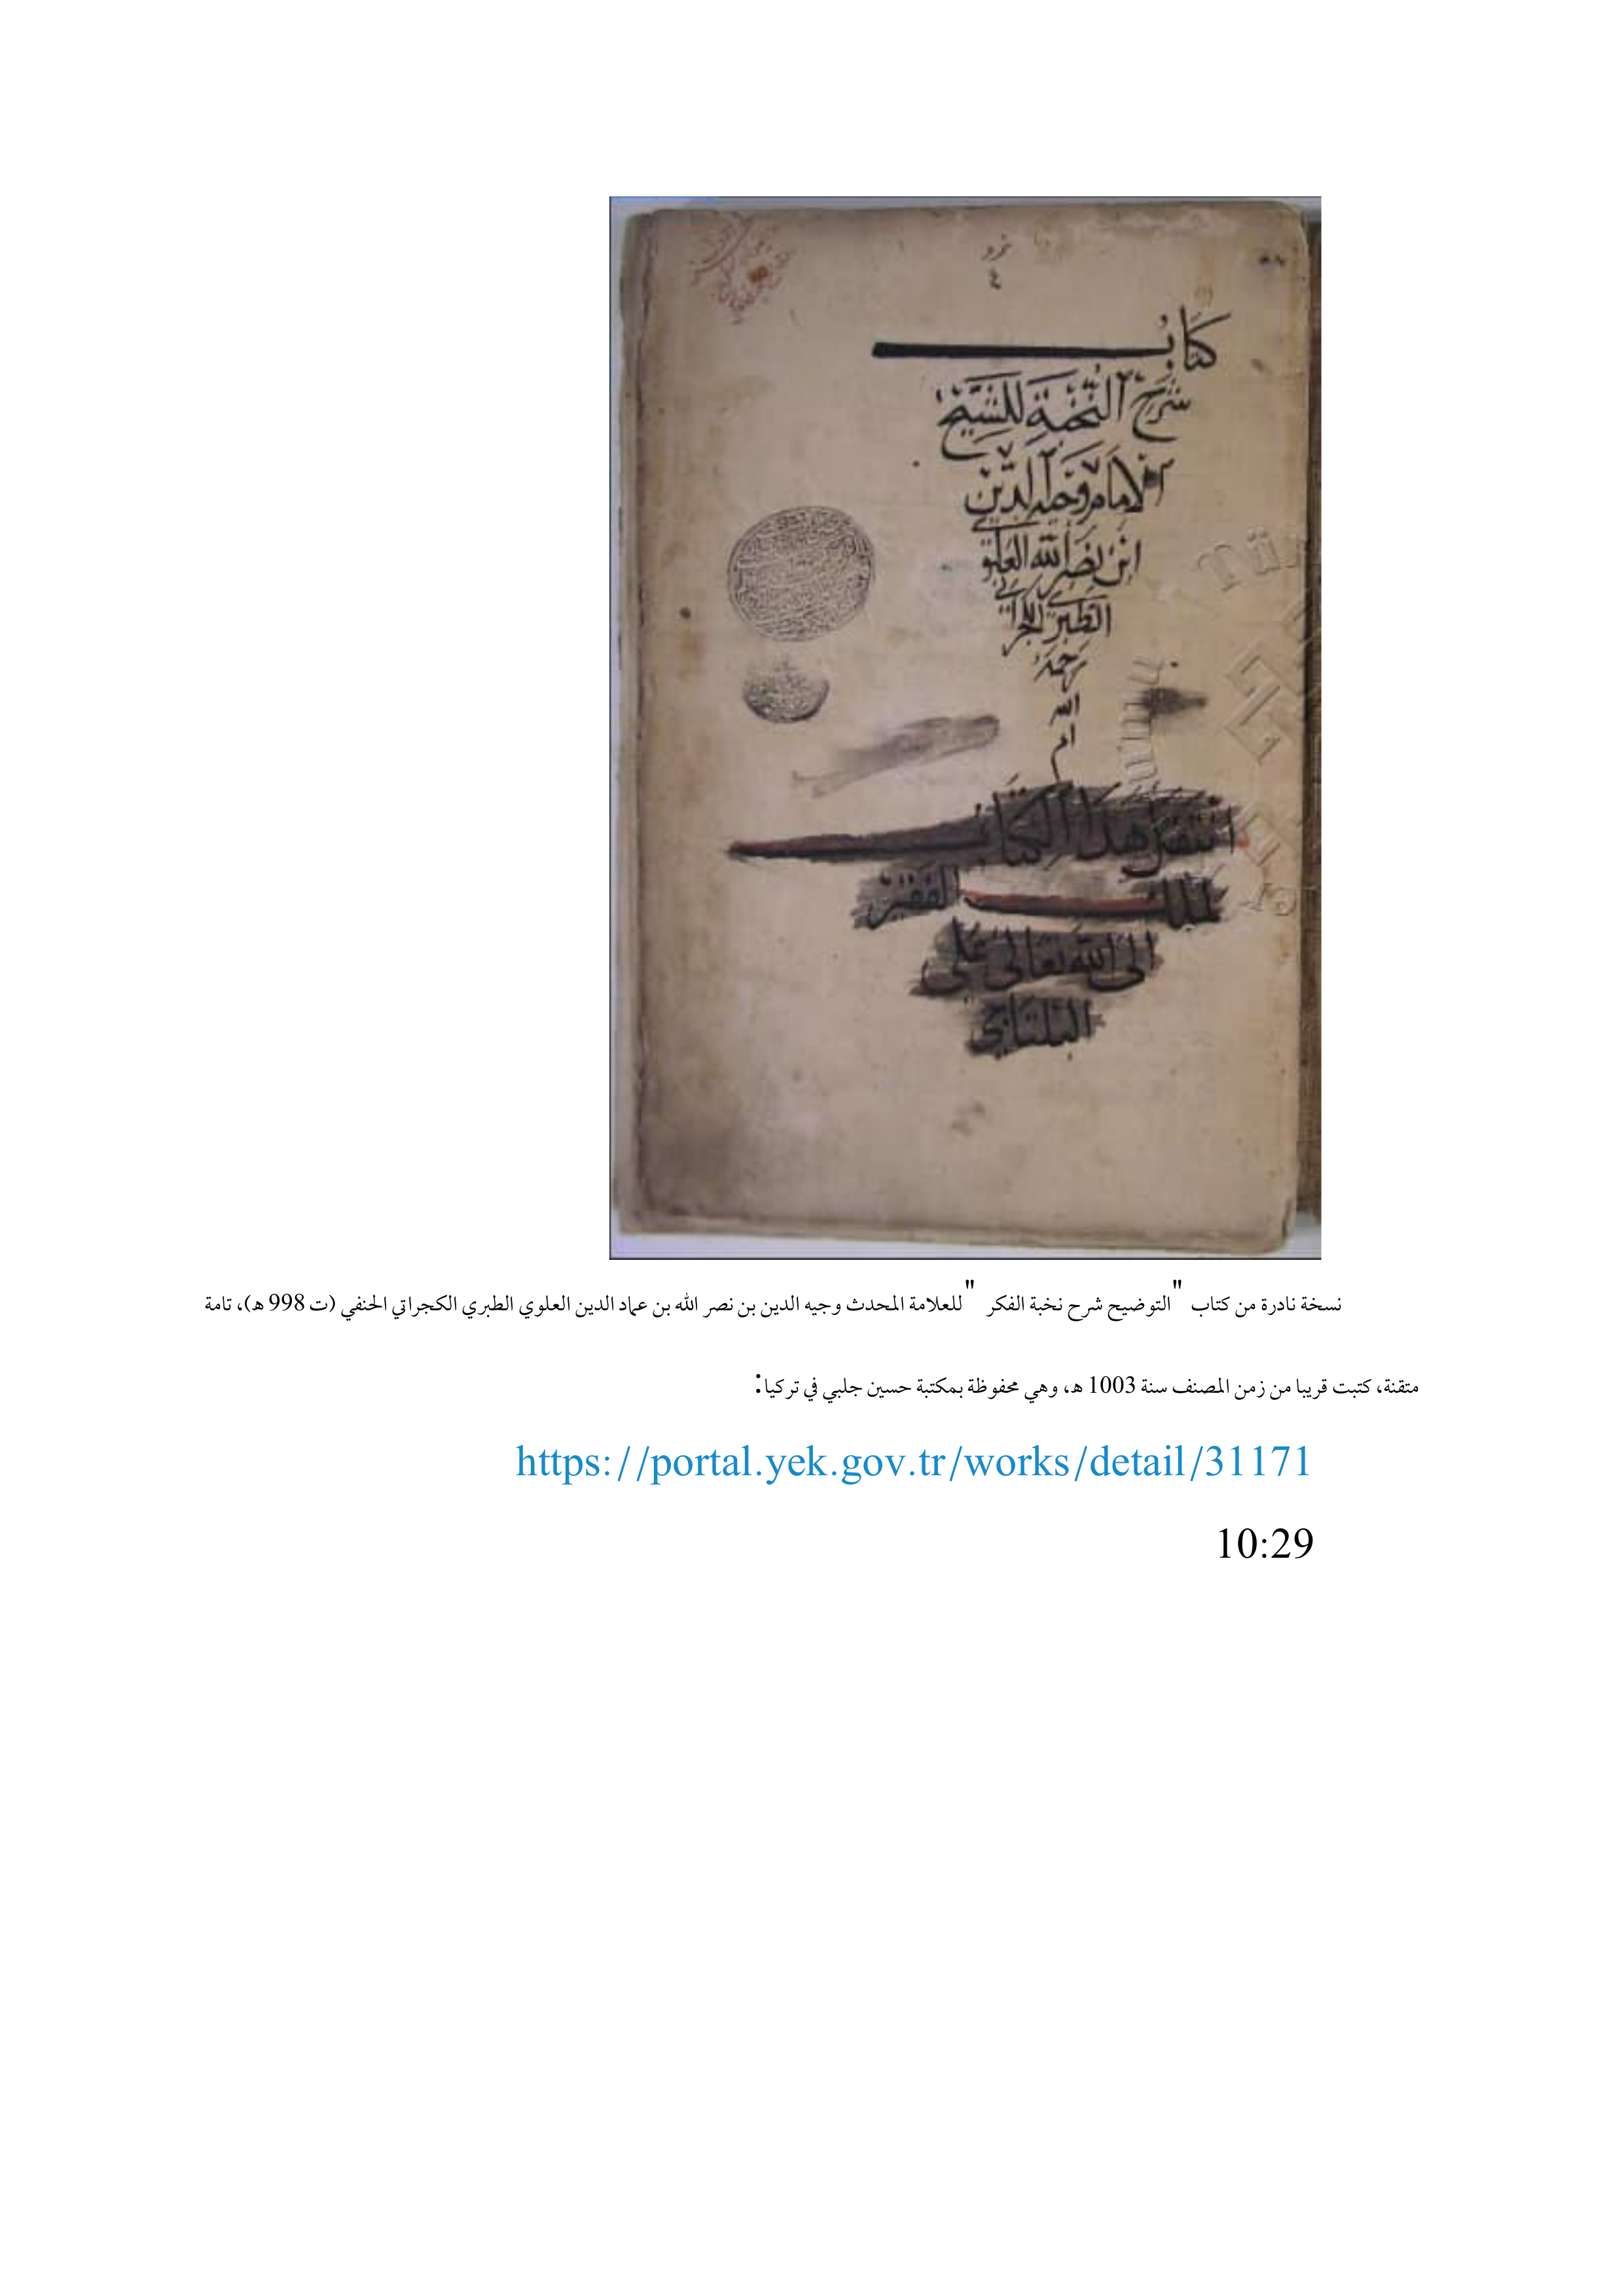 نمرو
٤
كتاب
شرح النخبة للشيخ
الامام وجيه الدين
ابن نصر الله العلوي
الطبري الكجراتي
رحمه
الله
ام
انتقل هذا الكتاب
لملك الفقير
الى الله تعالى علي
نسخة نادرة من كتاب "التوضيح شرح نخبة الفكر" للعلامة المحدث وجيه الدين بن نصر الله بن عماد الدين العلوي الطبري الكجراتي الحنفي (ت 998 هـ)، تامة
متقنة، كتبت قريبا من زمن المصنف سنة 1003 هـ، وهي محفوظة بمكتبة حسين جلبي في تركيا:
https://portal.yek.gov.tr/works/detail/31171
10:29